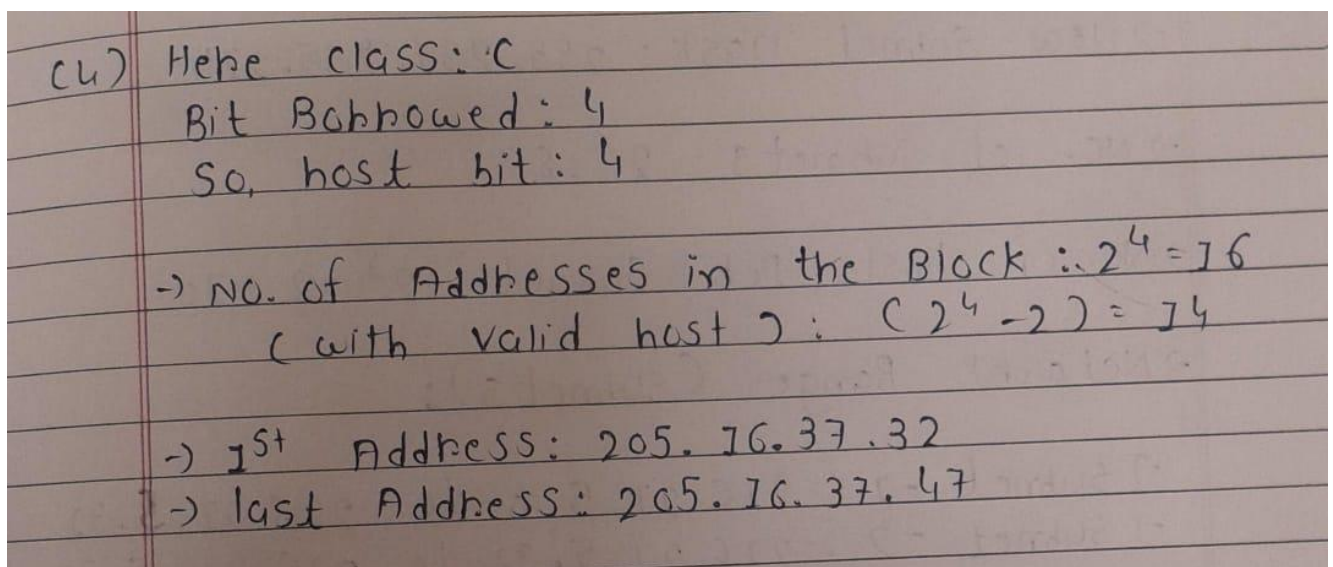 (4) Here class: C
Bit Borrowed: 4
So, host bit: 4
-> No. of Addresses in the Block : 2⁴ = 16
(with valid host) : (2⁴ - 2) = 14
-> 1st Address: 205.16.37.32
-> last Address: 205.16.37.47